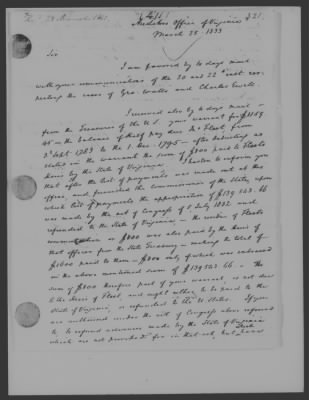 Auditors Office of Virginia
March 28 1833
Sir
I am favored by to days mail
with your communications of the 20 and 22nd inst res-
pecting the cases of Geo. Walls and Charles Ewell.
I received also by to days mail -
from the Treasurer of the U.S. your warrant for
in the balance of half pay due Fleet from
3d Sept 1783 to the 1. Dec. 1795 - after deducting as
stated in the warrant the sum of $800 paid to Fleets
heirs by the State of Virginia. I hasten to inform you
that after the list of payments was made out at this
office, and furnished the commissioners of the state, upon
which list of payments the appropriation of $139,543.66
was made by the act of Congress of 5 July 1832 and
refunded to the State of Virginia - the residue of Fleets
or $800 was also paid by the heirs of
that officer from the State Treasury - making the total of
$1600 paid to them - $800 only of which was embraced
in the above mentioned sum of $139,543.66 - The
sum of $800 therefore part of your warrant, is not due
to the heirs of Fleet, and ought either to be paid to the
State of Virginia, or refunded to the U. States. If you
are authorised under the act of Congress above referred
to to refund advances made by the State of Virginia
which are not provided for in that act, but